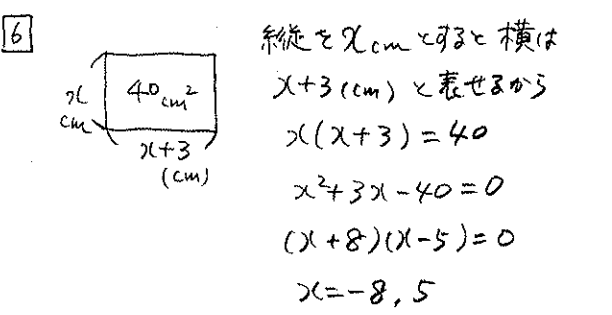 6
40cm²
x
cm
x+3
(cm)
縦をxcmとすると横は
x+3(cm)と表せるから
x(x+3)=40
x²+3x-40=0
(x+8)(x-5)=0
x=-8,5